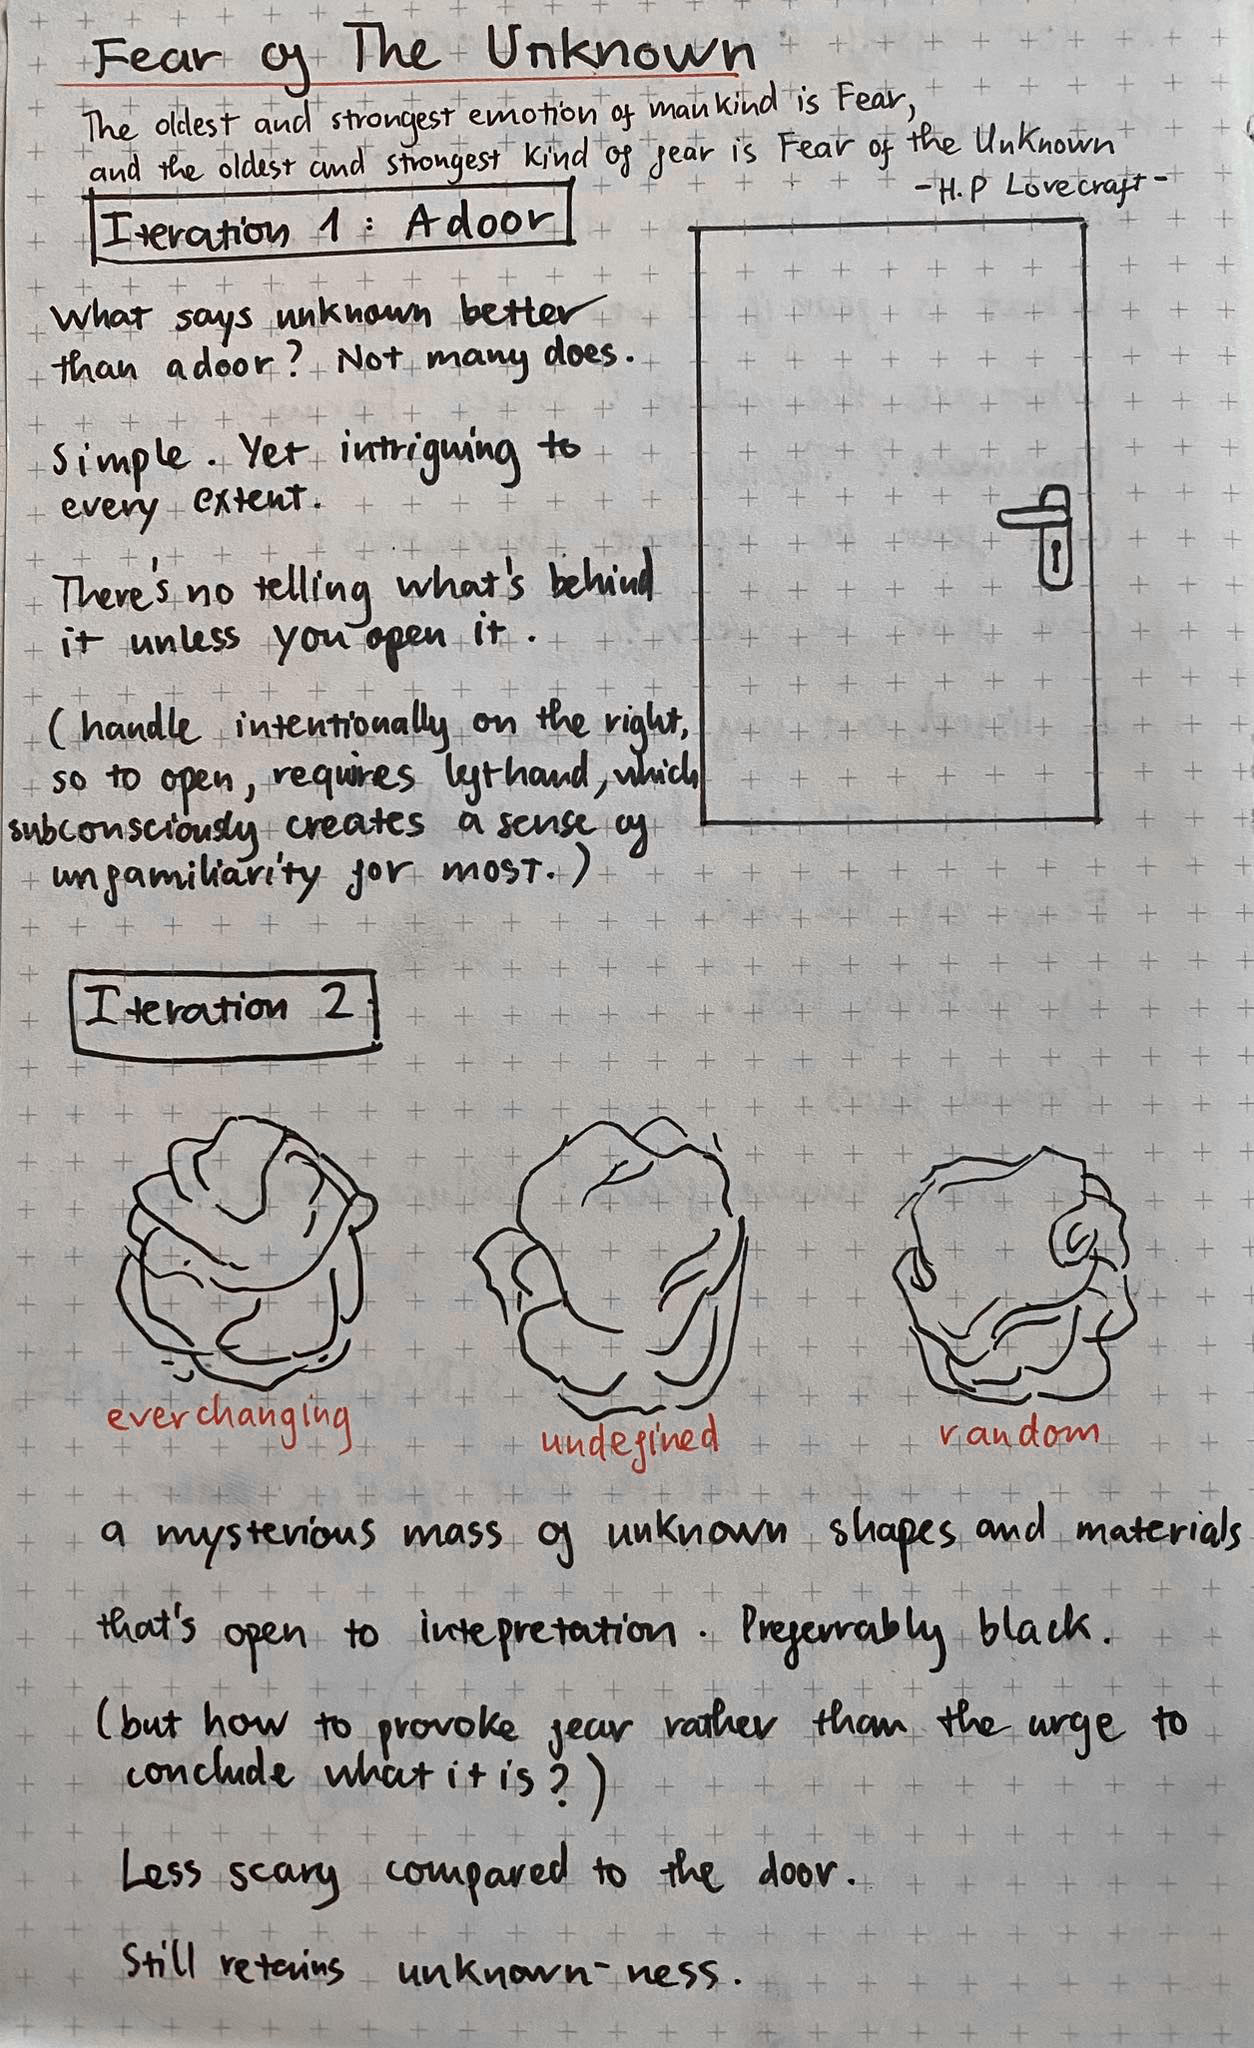 Fear of The Unknown
The oldest and strongest emotion of mankind is Fear,
and the oldest and strongest kind of fear is Fear of the Unknown
-H.P Lovecraft-
Iteration 1: A door
What says unknown better
than a door? Not many does.
Simple. Yet intriguing to
every extent.
There's no telling what's behind
it unless you open it.
(handle intentionally on the right,
so to open, requires lefthand, which
subconsciously creates a sense of
unfamiliarity for most.)
Iteration 2
everchanging
undefined
random
a mysterious mass of unknown shapes and materials
that's open to intepretation. Preferrably black.
(but how to provoke fear rather than the urge to
conclude what it is?)
Less scary compared to the door.
Still retains unknown-ness.